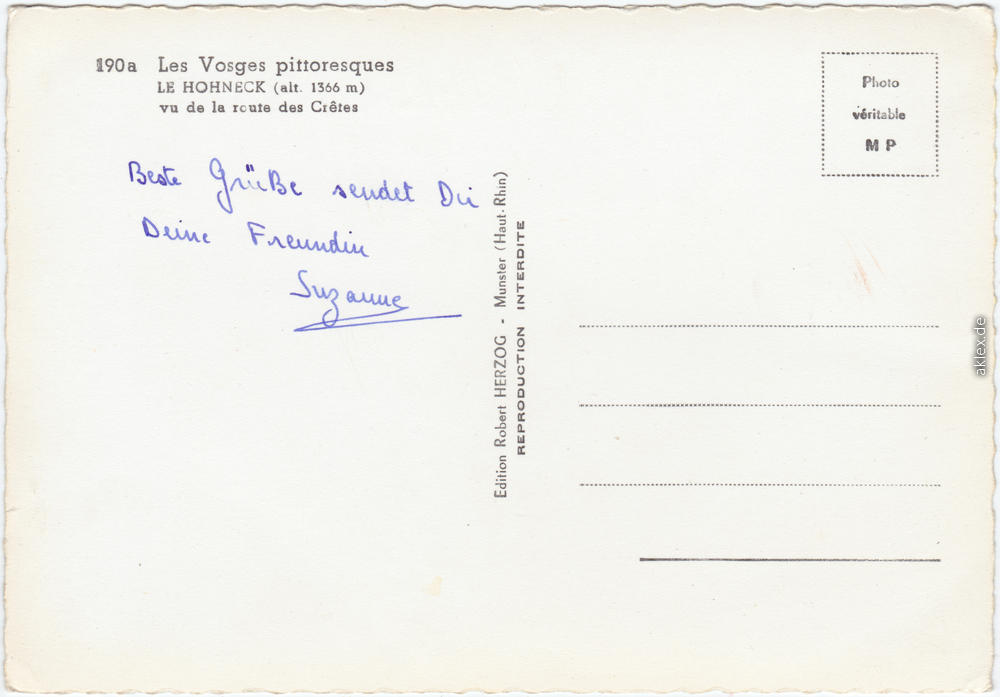 190a Les Vosges pittoresques
LE HOHNECK (alt. 1366 m)
vu de la route des Crêtes
Beste Grüße sendet Dir
Deine Freundin
Suzanne
Edition Robert HERZOG - Munster (Haut-Rhin)
REPRODUCTION INTERDITE
Photo
véritable
M P
aklex.de